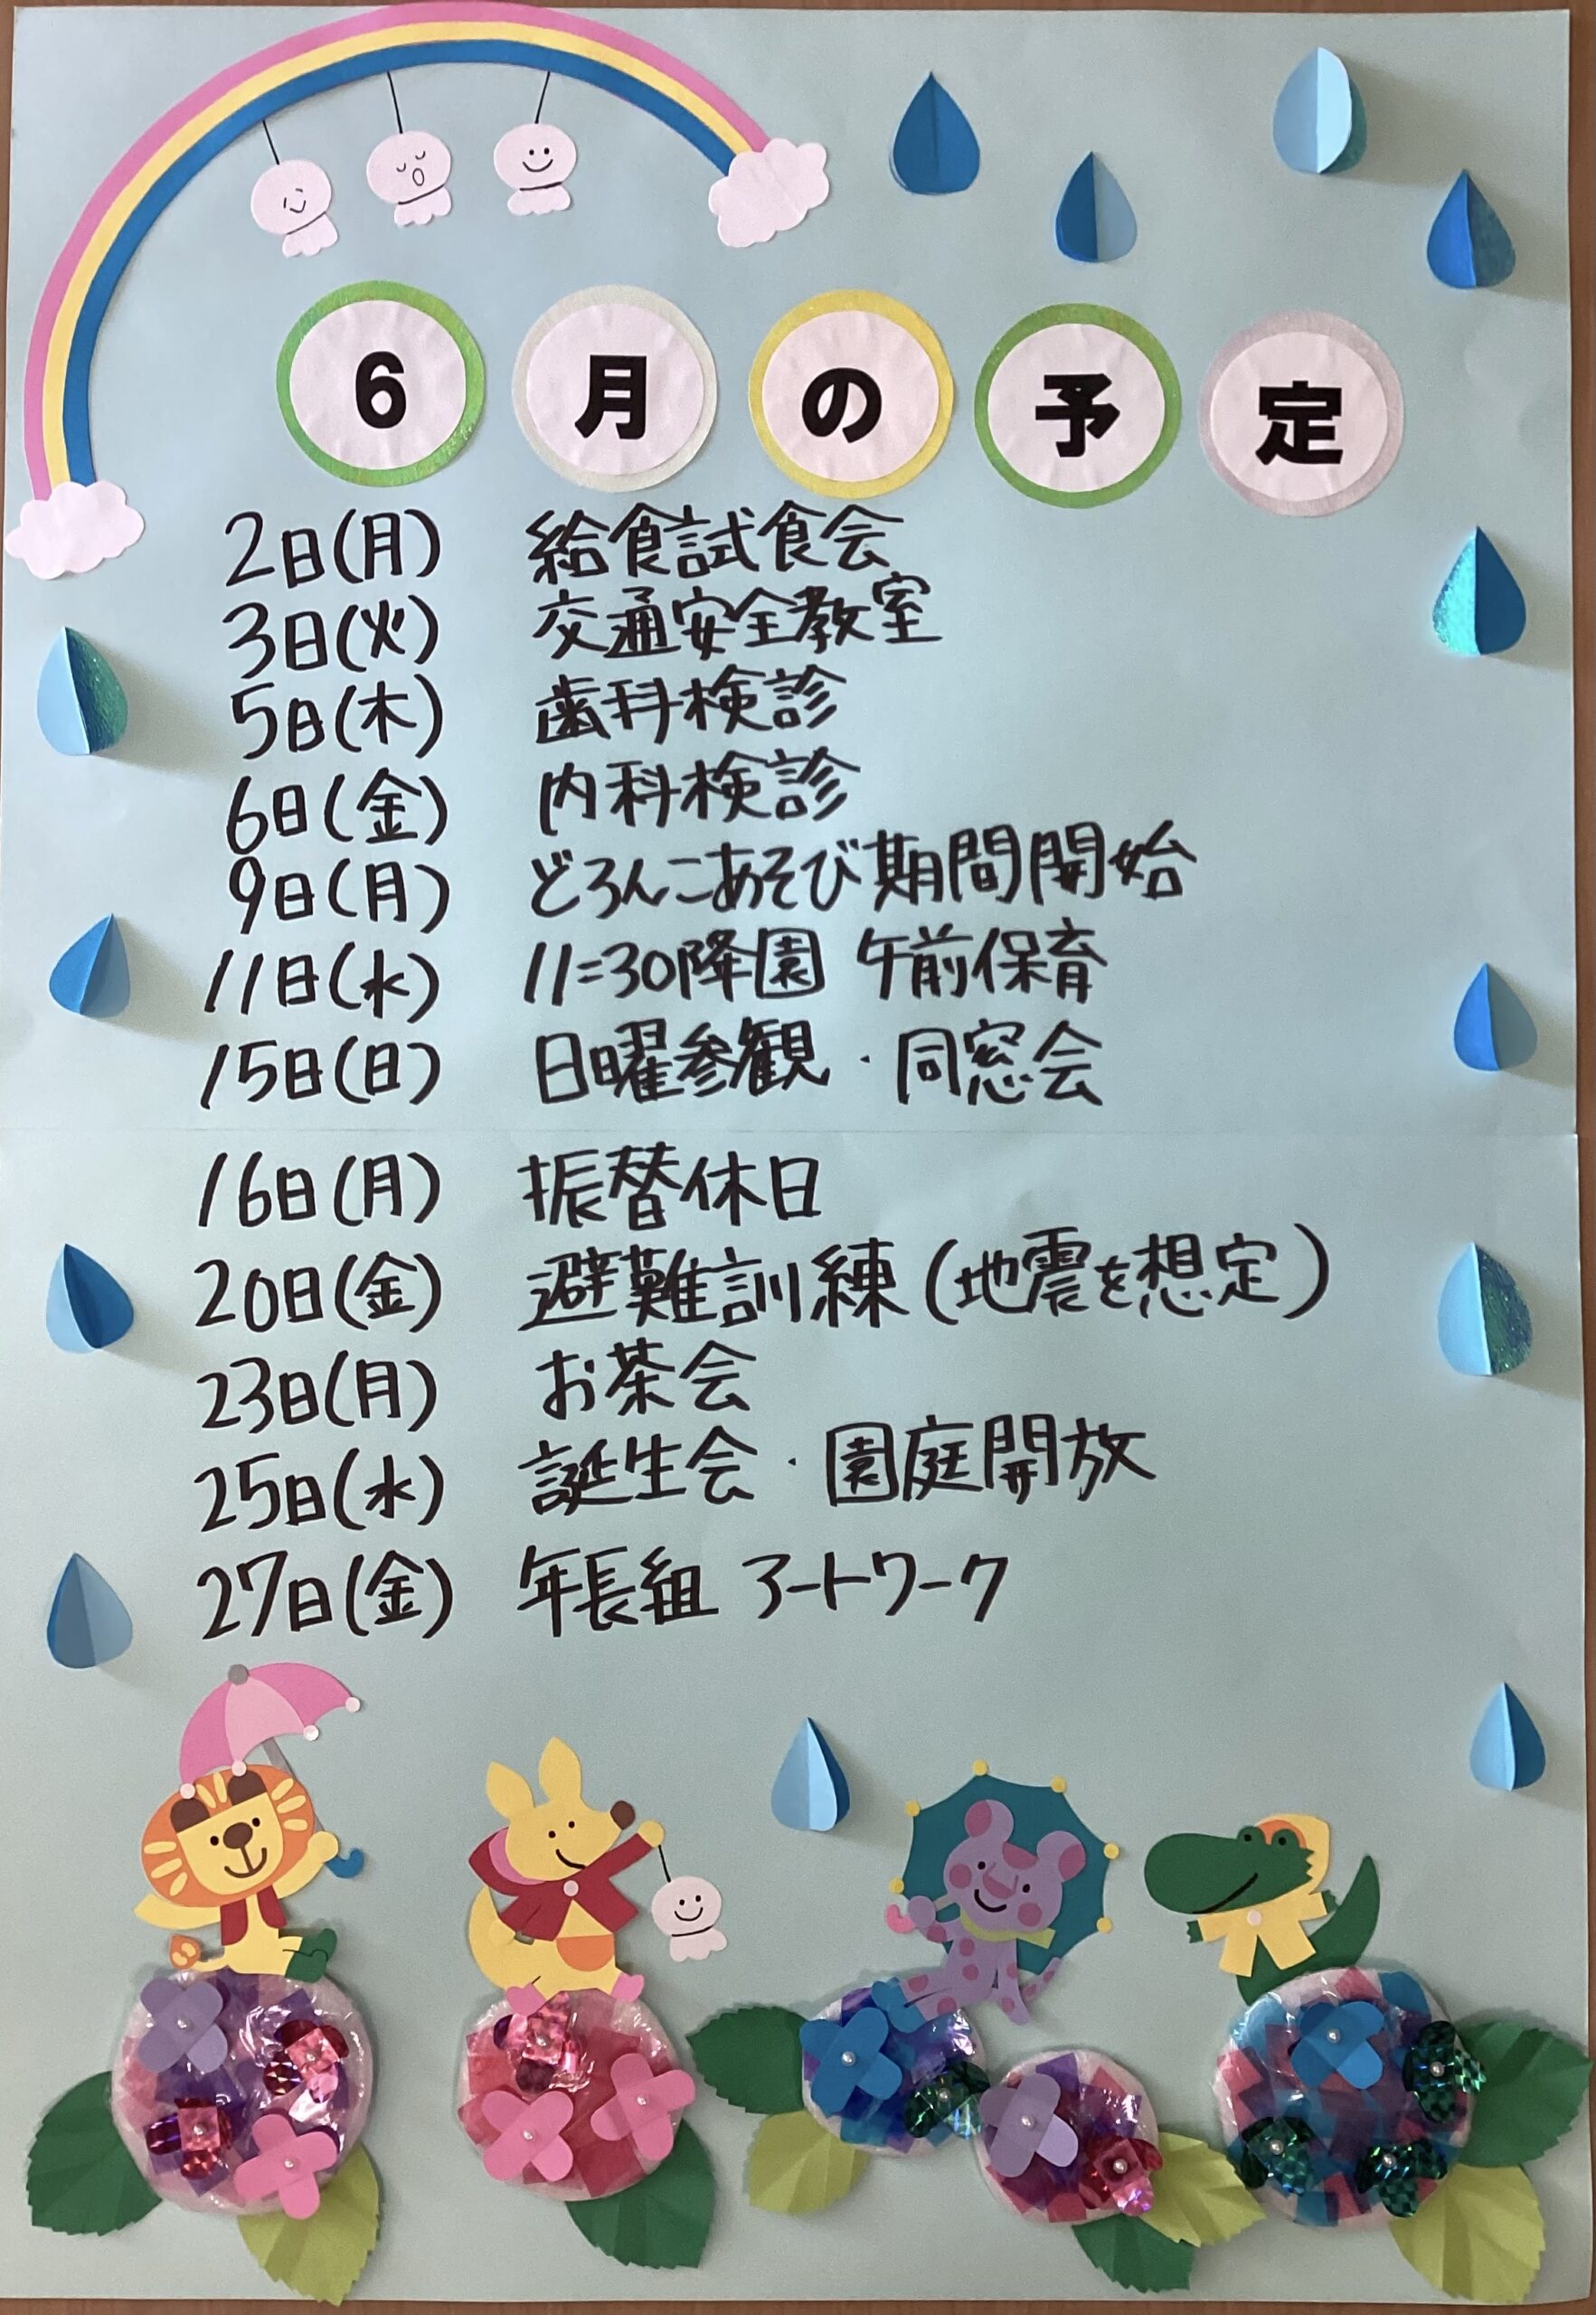 6月の予定
2日(月) 給食試食会
3日(火) 交通安全教室
5日(木) 歯科検診
6日(金) 内科検診
9日(月) どろんこあそび期間開始
11日(水) 11:30降園 午前保育
15日(日) 日曜参観・同窓会
16日(月) 振替休日
20日(金) 避難訓練(地震を想定)
23日(月) お茶会
25日(水) 誕生会・園庭開放
27日(金) 年長組 アートワーク